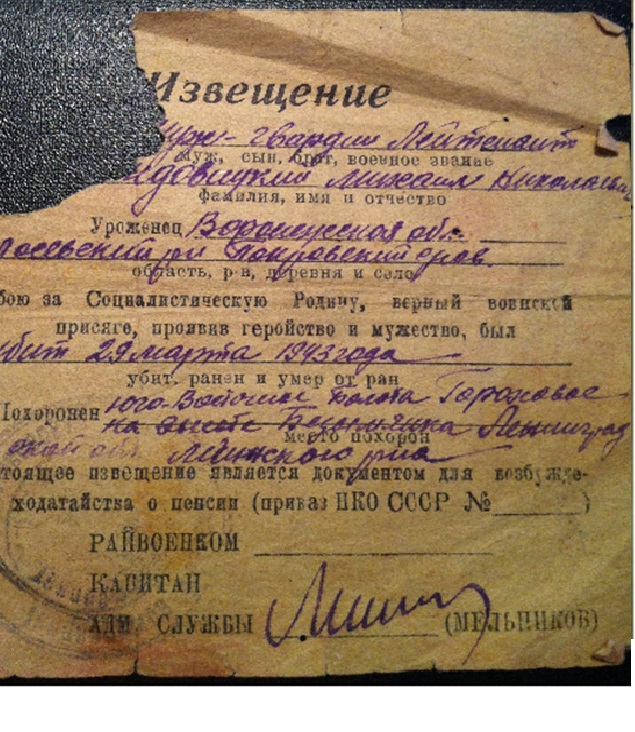 Извещение
муж- гвардии Лейтенант
Муж, сын, брат, военное звание
Михаил Николаевич
фамилия, имя и отчество
Уроженец Воронежская обл.
Лосевский р-н Покровский
область, р-н, деревня и село
бою за Социалистическую Родину, верный воинской
присяге, проявив геройство и мужество, был
убит 29 марта 1943 года
убит. ранен и умер от ран
Похоронен юго-Восточнее болота Гороховое
на высоте Безымянка Ленинград
место похорон
ской обл. Мгинского р-на
стоящее извещение является документом для возбужде-
ходатайства о пенсии (приказ НКО СССР №______)
РАЙВОЕНКОМ
КАПИТАН
АДМ СЛУЖБЫ (МЕЛЬНИКОВ)